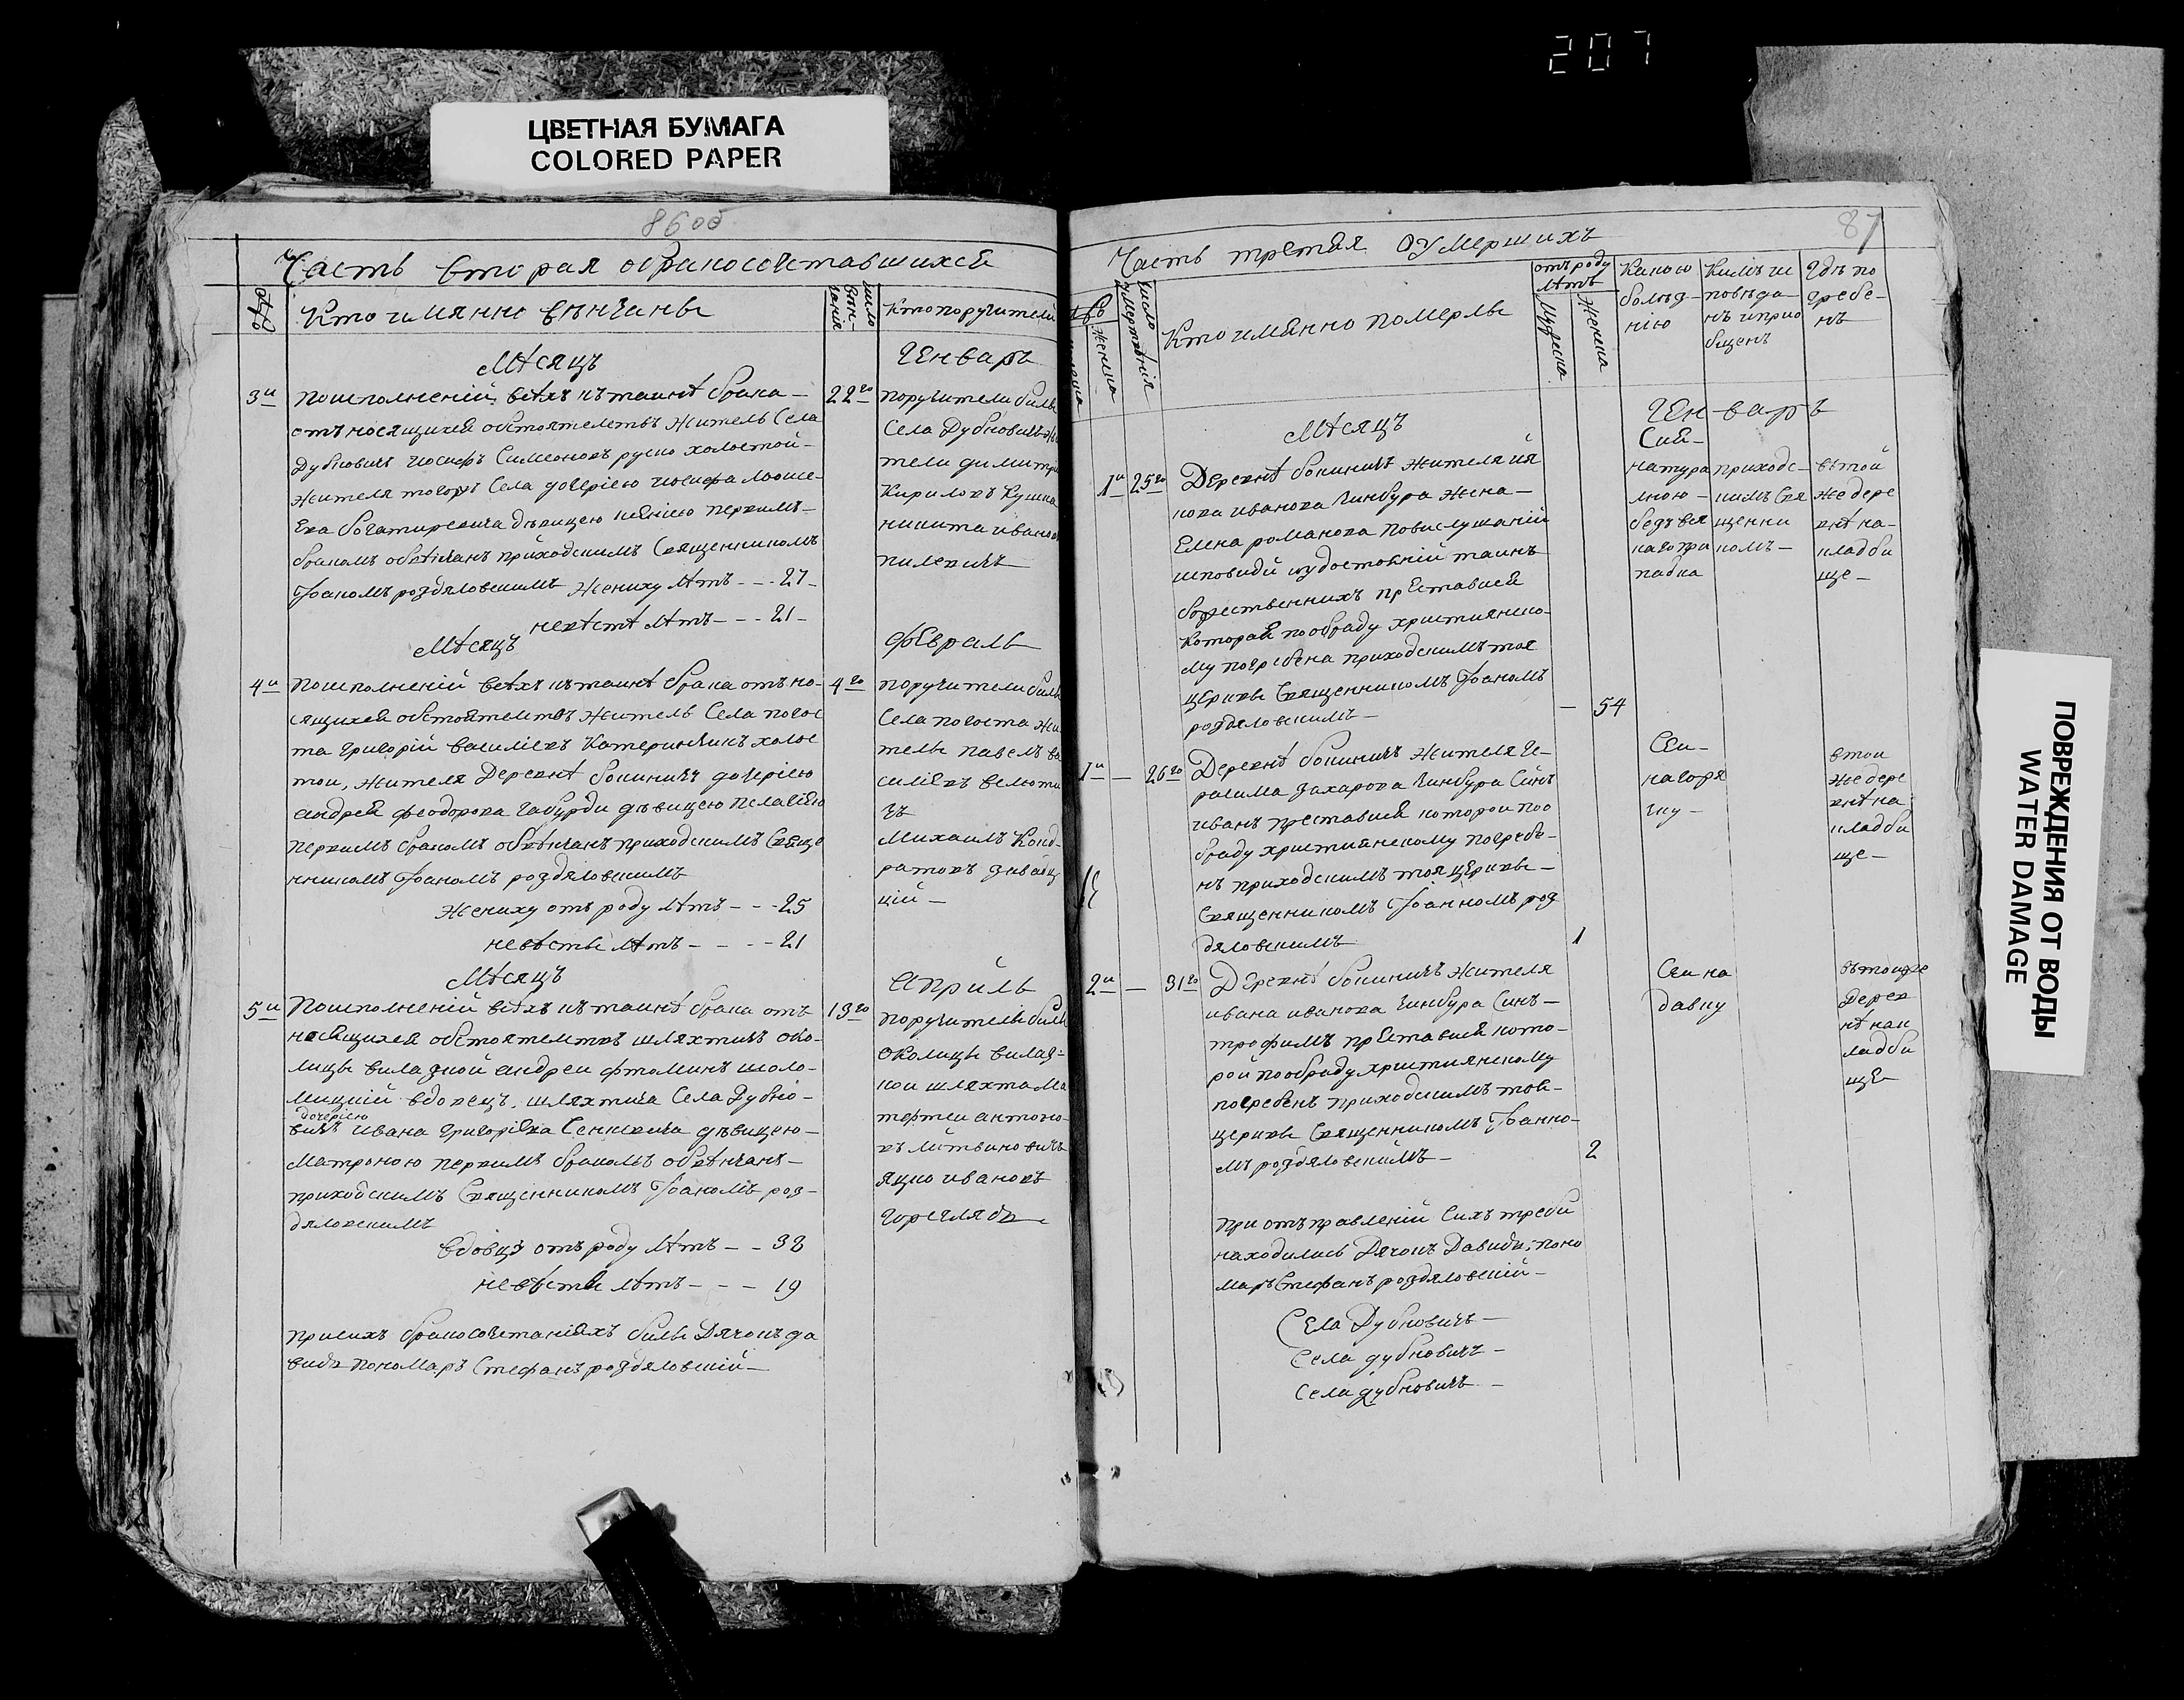 207
ЦВЕТНАЯ БУМАГА
COLORED PAPER
860б
Часть вторая обракосочетавшихся
№
Кто имянно вѣнчаны
число вѣнчанія
Кто поручители
Мѣсяцъ
Генварь
3й
поисполненій всѣхъ кътаинѣ брака –
отъносящихся обстоятелствъ житель Села
Дубновичъ Иосифъ Симеоновъ руско холостой –
жителя тогожъ Села дочеріею иосифа моисе–
Ева богатиревича дѣвицею первимъ–
бракомъ обвѣнчанъ приходскимъ Священникомъ
Іоаномъ роздяловскимъ жениху лѣтъ - - - 27 -
невѣстѣ лѣтъ - - - 21 -
22го
поручители были
Села Дубновичъ жи
тели димитри
Кириловъ Кушна
никита иванов
пилевичъ
Мѣсяцъ
февраль
4й
Поисполненій всѣхъ кътаинѣ брака отъно–
сящихся обстоятелствъ житель Села погос
та Григорій василіевъ Катеринчикъ холос
той, жителя Деревнѣ бокиничъ дочеріею
андрея феодорова Габурди дѣвицею пелагіею
первимъ бракомъ обвѣнчанъ приходскимъ Свяще
нникомъ Іоаномъ роздяловскимъ
жениху отъ роду лѣтъ - - - 25
невѣсты лѣтъ - - - - 21
4го
поручители были
Села погоста жи
тели павелъ ва
силіевъ велюти
чъ
Михаилъ Конд–
ратовъ
цій –
Мѣсяцъ
Априль
5й
Поисполненій всѣхъ кътаинѣ брака отъ
носящихся обстоятелствъ шляхтичъ око–
лицы вилазкой андреи фтоминъ шоло–
мицкій вдовецъ, шляхтича Села Дубно–
дочеріею
вичъ ивана Григоріева Сенкевича дѣвицею–
Матроною первимъ бракомъ обвѣнчанъ–
приходскимъ Священникомъ Іоаномъ роз–
дяловскимъ
вдовцу отъ роду лѣтъ - - 38
невѣсты лѣтъ - - - 19
13го
поручители были
околицы вилаз–
кои шляхта ма
тфеи антоно–
въ литвиновичъ
яцко ивановъ
горегляди
присихъ бракосочетаніяхъ были Дячокъ да
видъ пономаръ Стефанъ роздяловскій –
87
Часть третая оумершихъ
№
женска
число умертвія
Кто имянно помэрлы
отъ роду лѣтъ
Мужеска
женска
Какою болѣз–нію
Кимъ ис повѣда–нъ иприо бщенъ
Гдѣ по гребе–нъ
Мѣсяцъ
Генварь
1й
25го
Деревнѣ бокиничъ жителя як
кова иванова Чинбура жена –
Елена романова повислушаній
исповиди иудостоѣній таинъ
божественнихъ преставися
которая пообраду християнско–
му погребена приходскимъ тоя
церкви Священникомъ Іоаномъ
роздяловскимъ –
– 54
Сия–
натура
лною –
приходс–
кимъ Свя
щенни
комъ –
вътой
же дере
внѣ на–
кладби
ще –
1й –
26го
Деревнѣ бокиничъ жителя Ге–
расима Захарова Чинбура Синъ
иванъ преставися которои поо
браду християнскому погребе–
нъ приходскимъ тоя церкви –
Священникомъ Іоанномъ роз
дяловскимъ
1
Сеи –
нагоря
чку –
втои
же дере
внѣ на
кладби
ще –
2й –
31го
Деревнѣ бокиничъ жителя
ивана иванова Чинбура Синъ –
трофимъ преставися кото–
рои пообраду християнскому
погребенъ приходскимъ тоя–
церкви Священникомъ Іоанно–
мъ роздяловскимъ –
2
Сеи на
давку
вътоиже
Дерев
нѣ нак
ладби
ще
При отъправленій Сихъ треби
находились Дячокъ Давидъ, поно
маръ Стефанъ роздяловскій –
Села Дубновичъ –
Села дубновичъ –
Села дубновичъ –
ПОВРЕЖДЕНИЯ ОТ ВОДЫ
WATER DAMAGE